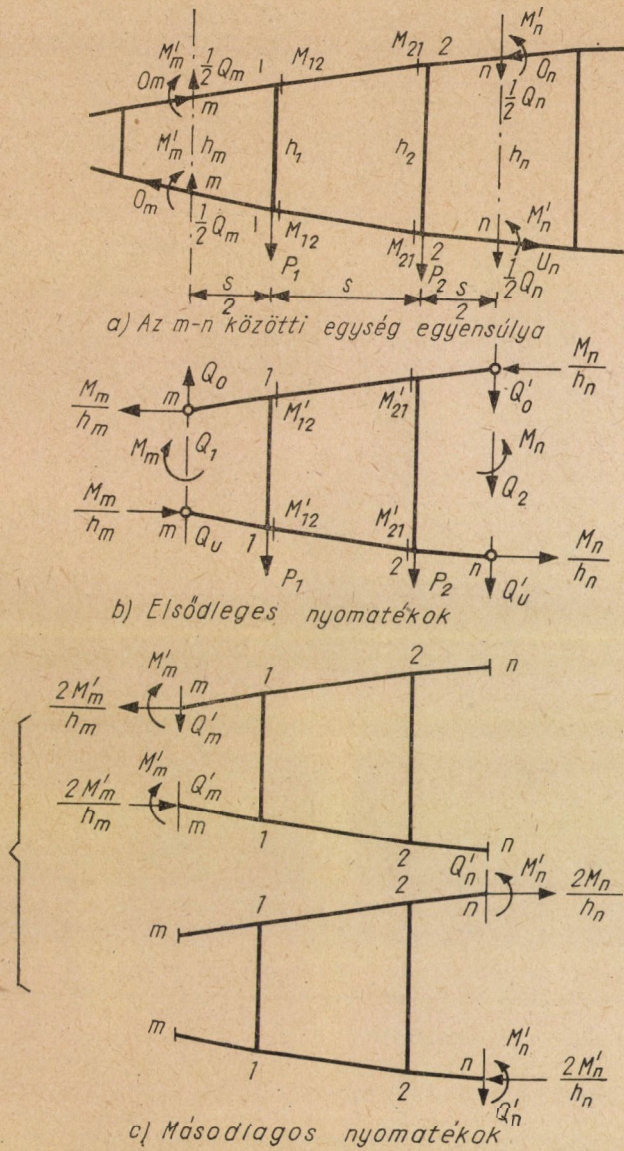 M'm 1/2 Qm 1 M12 M21 2 M'n
Om m n On
1/2 Qn
M'm hm h1 h2 hn
m
Om 1/2 Qm 1 M12 M21 2 n M'n
Un
P1 P2 1/2 Qn
s/2 s s/2
a) Az m-n közötti egység egyensúlya
Mm/hm m Qo 1 M'12 M'21 Mn/hn
Q'o
Mm Q1 Mn
Q2
Mm/hm m Qu 1 M'12 M'21 2 n Mn/hn
P1 P2 Q'u
b) Elsődleges nyomatékok
M'm m 1 2 n
2M'm/hm Q'm
M'm Q'm
2M'm/hm m 1 2 n
Q'n M'n
m 1 2 n 2Mn/hn
m 1 2 n M'n
2M'n/hn
Q'n
c) Másodlagos nyomatékok